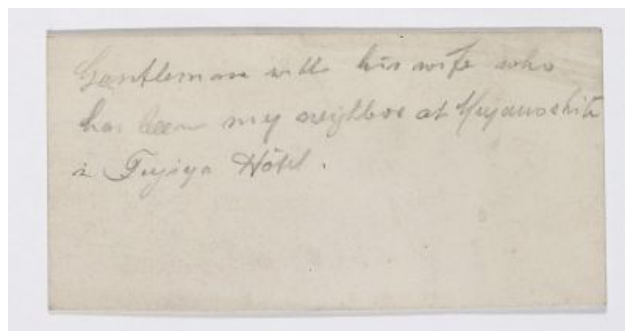 Gentleman with his wife who
has been my neighbor at Myanoshita
in Fujiya Hôtel.